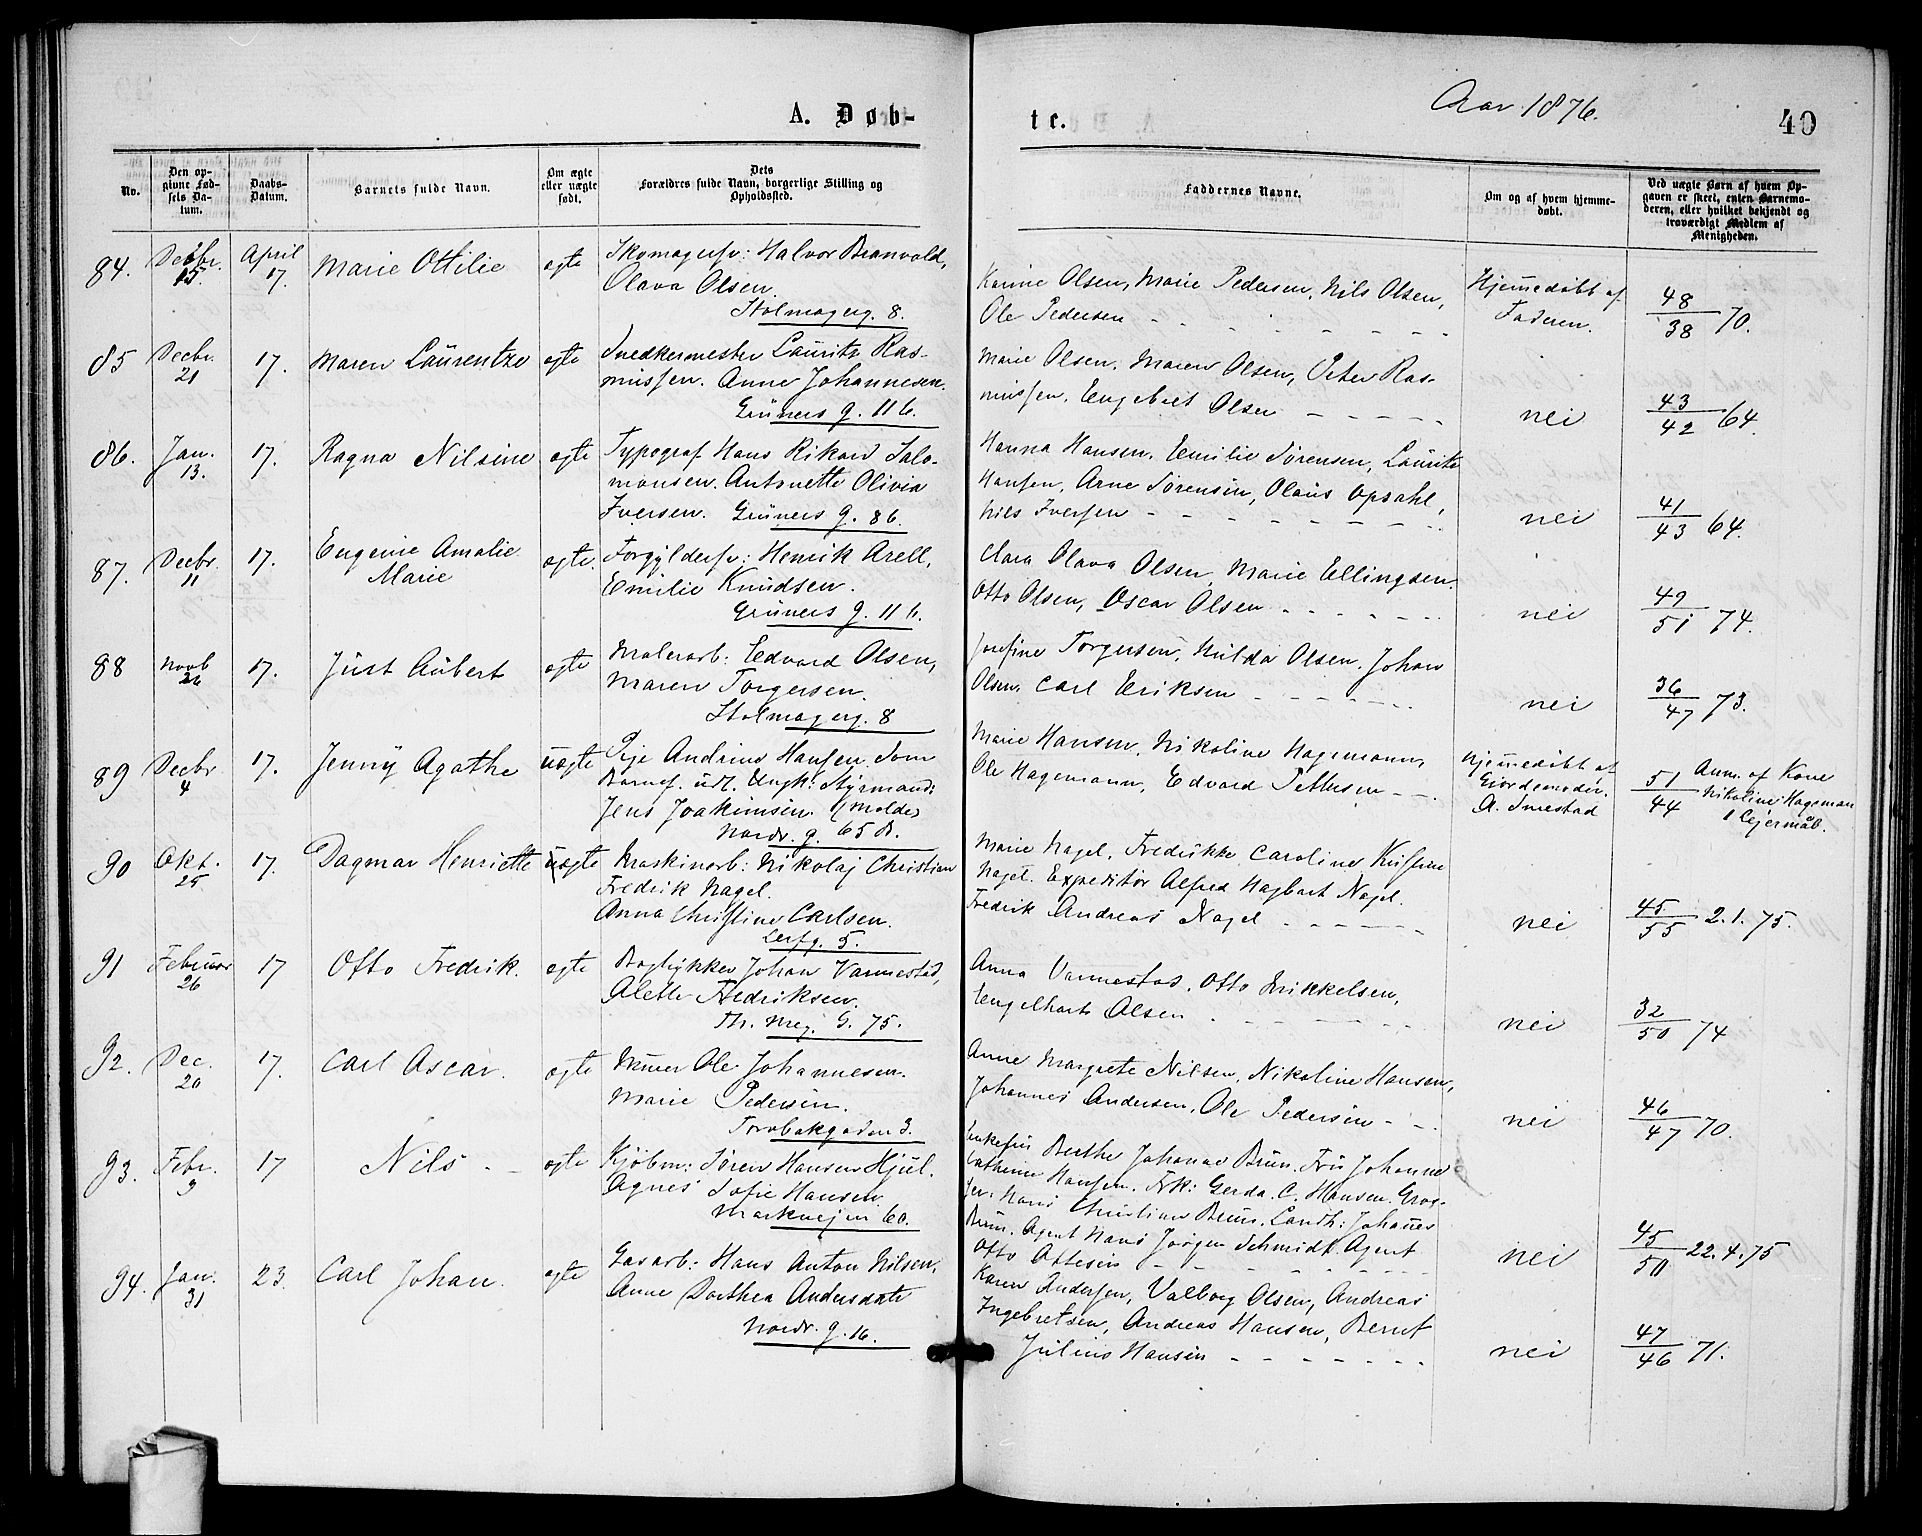 A. Døb-
No.
Den op-
givne Fød-
sels Da-
tum.
Daabs-
Datum.
Barnets fulde Navn.
Om ægte
eller uægte
født.
Dets
Forældres fulde Navn, borgerlige Stilling og
Opholdssted.
84. Decbr. 15. April 17. Marie Ottilie ægte Skomagersv: Halvor Branvold,
Olava Olsen.
Holmageng. 8.
85 Decbr. 21 17. Maren Laurentze ægte Snedkermester Lauritz Ras-
mussen. Anne Johannesen.
Grüners g. 11 b.
86. Jan. 13. 17. Ragna Nilsine ægte Typograf Hans Rikard Salo-
monsen. Antonette Olivia
Iversen. Grüners g. 8 b.
87. Decbr. 11 17. Eugenie Amalie
Marie ægte. Forgyldersv: Henrik Arell,
Emilie Knudsen.
Grüners g. 11 b.
88 Novb 26 17. Just Aubert ægte Malerarb: Edvard Olsen,
Maren Torgersen.
Holmageng. 8
89 Decbr 4 17. Jenny Agathe uægte Pige Andrine Hansen. Som
Barnef. udl. Ungk: Styrmand:
Jens Joakimsen (Molde)
Nordr. g. 65 B.
90 Okt. 25 17. Dagmar Henriette uægte Maskinarb: Nikolaj Christian
Fredrik Nagel.
Anna Christine Carlsen.
Leifg. 5.
91 Februar 26 17 Otto Fredrik. ægte Bogtykker Johan Vannestad,
Alette Fredriksen.
Th. Mey. G. 75.
92. Dec. 20 17. Carl Oscar. ægte Murer Ole Johannesen.
Marie Pedersen.
Torvbakgaden 3.
93. Febr. 9 17 Nils - - ægte Kjøbm: Søren Hansen Hjul.
Agnes Sofie Hansen
Markvejen 60.
94. Jan. 31 23. Carl Johan. ægte Gasarb: Hans Anton Nilsen,
Anne Dorthea Andersdatr
Nordr. g. 16.
te.
Aar 1876.
40
Faddernes Navne.
Om og af hvem hjemme-
døbt.
Ved uægte Børn af hvem Op-
gaven er skeet, enten Barnemo-
deren, eller hvilket bekjendt og
troværdigt Medlem af
Menigheden.
Karine Olsen, Marie Pedersen, Nils Olsen,
Ole Pedersen - - - - - - - Hjemmedøbt af
Faderen. 48/38 70.
Marie Olsen, Maren Olsen, Peter Ras-
mussen, Engebret Olsen - - - - nei 43/42 64.
Hanna Hansen, Emilie Sørensen, Lauritz
Hansen, Arne Sørensen, Olaus Opsahl,
Nils Iversen - - - - - - - nei 41/43 64.
Clara Olava Olsen, Marie Ellingsen.
Otto Olsen, Oscar Olsen - - - - - nei 49/51 74.
Josefine Torgersen, Hilda Olsen. Johan
Olsen. Carl Eriksen - - - - - nei 36/47 73.
Marie Hansen, Nikoline Hagemann,
Ole Hagemann, Edvard Pettersen - - Hjemmedøbt af
Gjordemoder.
A. Imestad 51/44 Anm. af Kone
Nikoline Hageman
Marie Nagel, Fredrikke Caroline
Nagel. Expeditør Alfred Hagbart Nagel.
Fredrik Andreas Nagel - - - - - nei 45/55 2.1.75.
Anna Vannestad, Otto Mikkelsen,
Engelhart Olsen - - - - - nei 32/50 74
Anne Margrete Nilsen, Nikoline Hansen,
Johannes Andersen, Ole Pedersen - - nei 46/47 70.
Enkefru Berthe Johanne Brun. Fru Johanne
Cathrine Hansen. Frk: Gerda. C. Hansen. Gros-
ser: Hans Christian Brun. Landh: Johanes
Brun. Agent Hans Jørgen Schmidt. Agent
Otto Ottesen - - - - - - - nei 45/50 22.4.75
Karen Andersen, Valborg Olsen, Andreas
Ingebretsen, Andreas Hansen, Bernt
Julius Hansen - - - - - - nei 47/46 71.